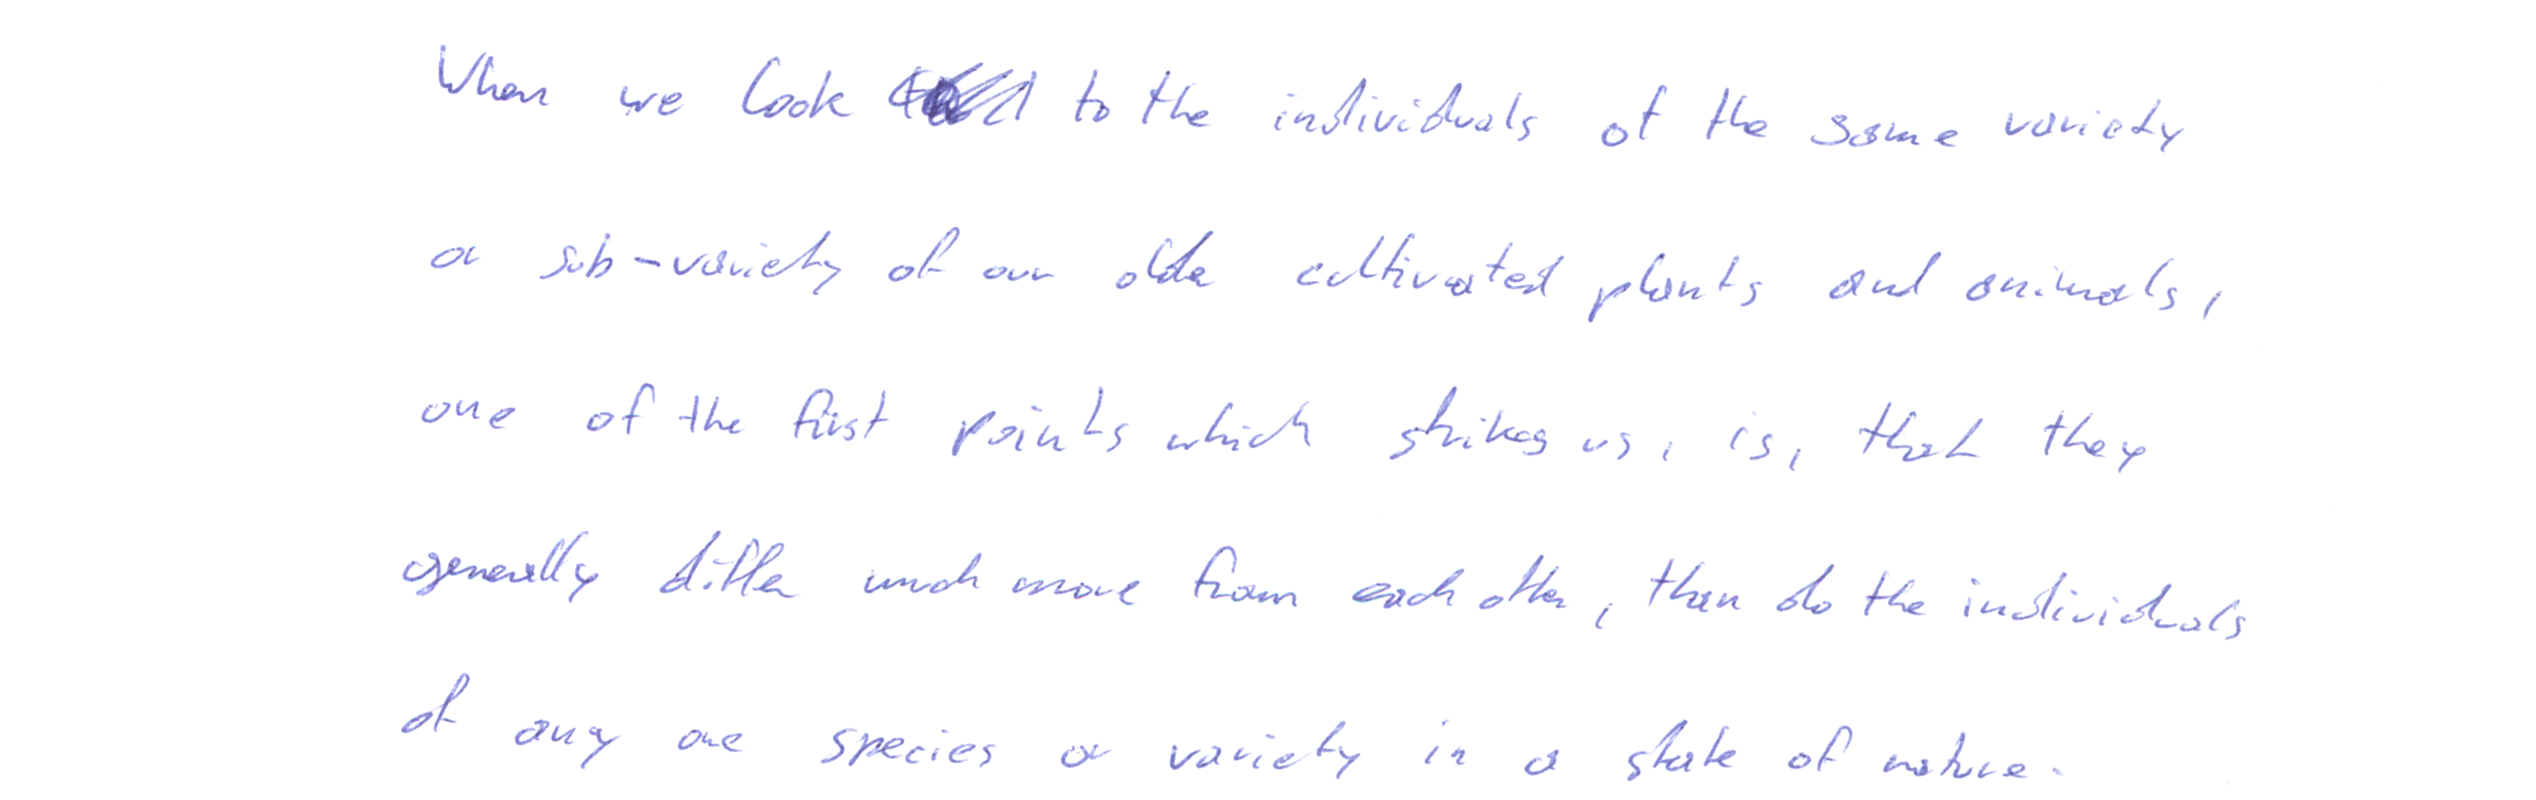 When we look to the individuals of the same variety
or sub-variety of our older cultivated plants and animals,
one of the first points which strikes us, is, that they
generally differ much more from each other, than do the individuals
of any one species or variety in a state of nature.